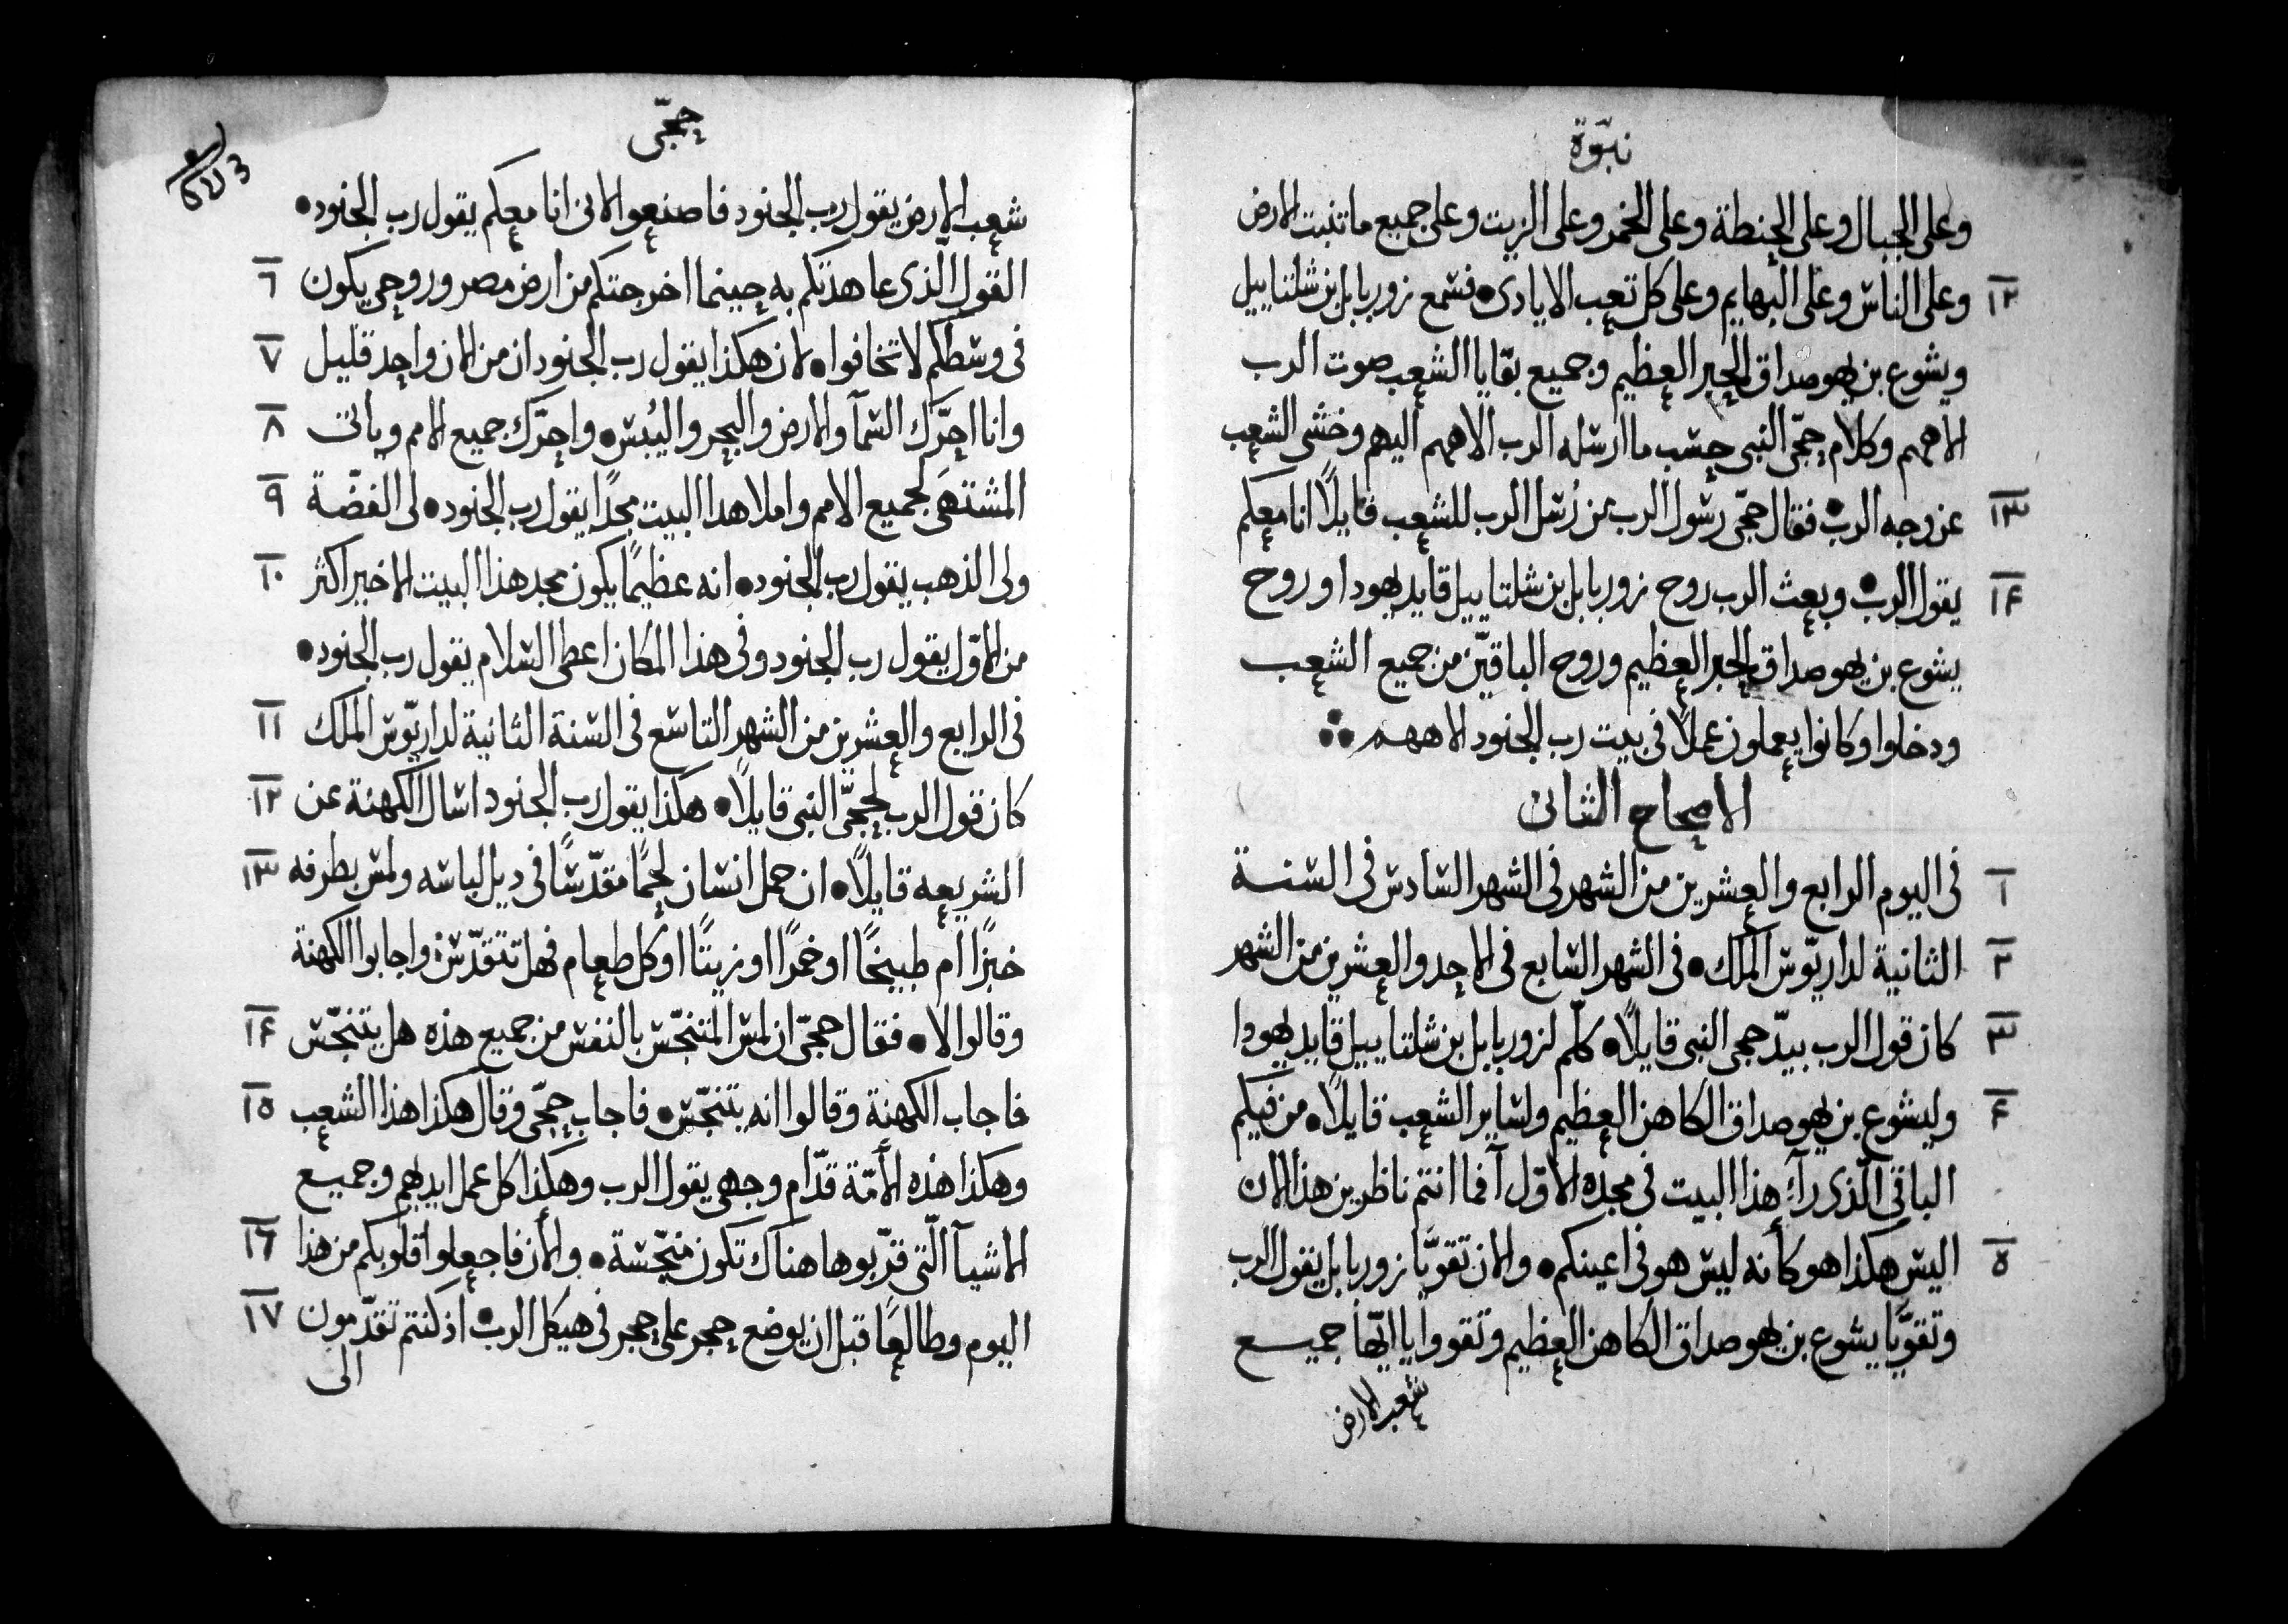 نبوّة
وعلى الجبال وعلى الحنطة وعلى الخمر وعلى الزيت وعلى جميع ما تنبت الارض
١٢ وعلى الناس وعلى البهايم وعلى كل تعب الايادى • فسمع زوربابل بن شلتاييل
ويشوع بن يهوصداق الحبر العظيم وجميع بقايا الشعب صوت الرب
الاههم وكلام حجّى النبى حسب ما ارسله الرب الاههم اليهم وخشى الشعب
١٣ عن وجه الرب • فقال حجّى رسول الرب من رُسل الرب للشعب قايلًا انا معكم
١٤ يقول الرب • وبعث الرب روح زوربابل بن شلتاييل قايد يهودا وروح
يشوع بن يهوصداق الحبر العظيم وروح الباقيّن من جميع الشعب
ودخلوا وكانوا يعملون عملًا فى بيت رب الجنود الاههم
الاصحاح الثانى
١ فى اليوم الرابع والعشرين من الشهر فى الشهر السادس فى السنة
٢ الثانية لداريّوس الملك • فى الشهر السابع فى الاحد والعشرين من الشهر
٣ كان قول الرب بيدّ حجى النبى قايلًا • كلّم لزوربابل بن شلتاييل قايد يهودا
٤ وليشوع بن يهوصداق الكاهن العظيم ولساير الشعب قايلًا • من فيكم
الباقى الّذى رآى هذا البيت فى مجده الاوّل آفما انتم ناظرين هذا الان
٥ اليس هكذا هو كأنه ليس هو فى اعينكم • والان تقوّيا زوربابل يقول الرب
وتقوّيا يشوع بن يهوصداق الكاهن العظيم وتقووا يا ايّها جميع
شعب الارض
حجّى
شعب الارض يقول رب الجنود فاصنعوا لانى انا معكم يقول رب الجنود •
٦ القول الّذى عاهدتكم به حينما اخرجتكم من ارض مصر وروحى يكون
٧ فى وسطكم لا تخافوا • لان هكذا يقول رب الجنود ان من الان واحد قليل
٨ وانا احرّك السمآ والارض والبحر واليُبس • واحرّك جميع الامم وياتى
٩ المشتهَى لجميع الامم واملا هدا البيت مجدًا يقول رب الجنود • لى الفضّة
١٠ ولى الذهب يقول رب الجنود • انه عظيمًا يكون مجد هذا البيت الاخير اكثر
من الاوّل يقول رب الجنود وفى هذا المكان اعطى السلام يقول رب الجنود •
١١ فى الرابع والعشرين من الشهر التاسع فى السنة الثانية لداريّوس الملك
١٢ كان قول الرب لحجّى النبى قايلًا • هكذا يقول رب الجنود اسال الكهنة عن
١٣ الشريعه قايلًا • ان حمل انسان لحمًا مقدّسًا فى ديل لباسه ولمس بطرفه
خبزًا ام طبيخًا او خمرًا او زيتًا او كل طعام فهل تتقدّس واجابوا الكهنة
١٤ وقالوا لا • فقال حجّى ان لمس المتنجّس بالنفس من جميع هذه هل يتنجّس
١٥ فاجاب الكهنة وقالوا انه يتنجّس • فاجاب حجّى وقال هكذا هذا الشعب
وهكذا هذه الأمّة قدّام وجهى يقول الرب وهكذا كل عمل ايديهم وجميع
١٦ الاشيآ الّتى قرّبوها هناك تكون منجّسة • والأن فاجعلوا قلوبكم من هذا
١٧ اليوم وطالعًا قبل ان يوضع حجر على حجر فى هيكل الرب • اذ كنتم تقدّمون
الى